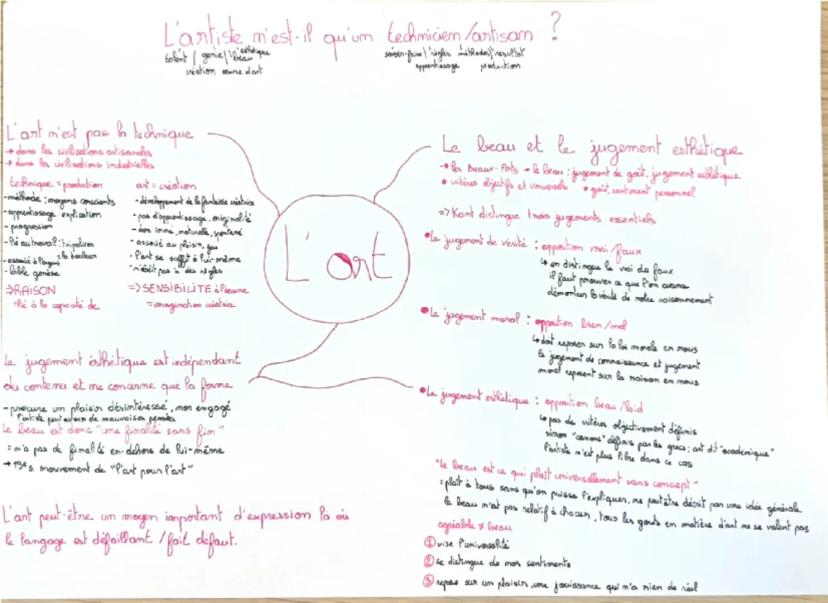 L'artiste n'est-il qu'un technicien/artisan ?
talent / génie / l'esthétique
le beau
création œuvre d'art
savoir-faire / règles méthodes / résultat
apprentissage production
L'art n'est pas la technique
→ dans les civilisations artisanales
→ dans les civilisations industrielles
technique = production
- méthode : moyens conscients
- apprentissage explication
- progression
- lié au travail : tripalium
= la douleur
- associé à l'argent
- bible genèse
⇒ RAISON
= lié à la capacité de
art = création
- développement de la fantaisie créatrice
- pas d'apprentissage, originalité
- don inné, naturel, spontané
- associé au plaisir, jeu
- l'art se suffit à lui-même
- n'obéit pas à des règles
=> SENSIBILITÉ à l'œuvre
= imagination créatrice
L'art
Le jugement esthétique est indépendant
du contenu et ne concerne que la forme
- procure un plaisir désintéressé, non engagé
l'artiste peut avoir de mauvaises pensées
le beau est donc "une finalité sans fin"
= n'a pas de finalité en-dehors de lui-même
→ 19e s. mouvement de "l'art pour l'art"
L'art peut-être un moyen important d'expression là où
le langage est défaillant / fait défaut.
Le beau et le jugement esthétique
→ les Beaux-Arts → le beau : jugement de goût, jugement esthétique
• critères objectifs et universels • goût, sentiment personnel
=> Kant distingue trois jugements essentiels
• Le jugement de vérité : opposition vrai / faux
↳ on distingue le vrai du faux
il faut prouver ce que l'on avance
démontrer la vérité de notre raisonnement
• Le jugement moral : opposition bien / mal
↳ doit reposer sur la loi morale en nous
le jugement de connaissance et jugement
moral reposent sur la raison en nous
• Le jugement esthétique : opposition beau / laid
↳ pas de critères objectivement définis
sinon "canons" définis par les grecs : art dit "académique"
l'artiste n'est plus libre dans ce cas
"le beau est ce qui plaît universellement sans concept"
= plaît à tous sans qu'on puisse l'expliquer, ne peut être décrit par une idée générale
le beau n'est pas relatif à chacun, tous les goûts en matière d'art ne se valent pas
agréable ≠ beau
① vise l'universalité
② se distingue de nos sentiments
③ repose sur un plaisir, une jouissance qui n'a rien de réel